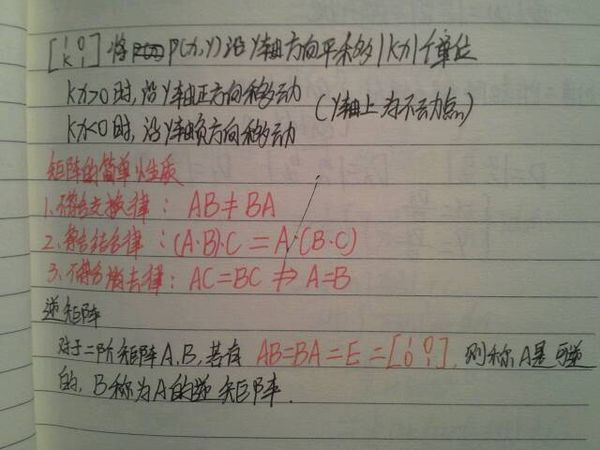 [1 0 k 1] 将 P(x,y) 沿y轴方向平移移 |kx| 个单位
kx>0时,沿y轴正方向移动
kx<0时,沿y轴负方向移动 (y轴上为不动点)
矩阵的简单性质
1.不符合交换律: AB≠BA
2.符合结合律: (A·B)·C = A·(B·C)
3.不符合消去律: AC=BC ⇏ A=B
逆矩阵
对于二阶矩阵A,B,若有 AB=BA=E=[1 0 0 1],则称A是可逆
的,B称为A的逆矩阵.